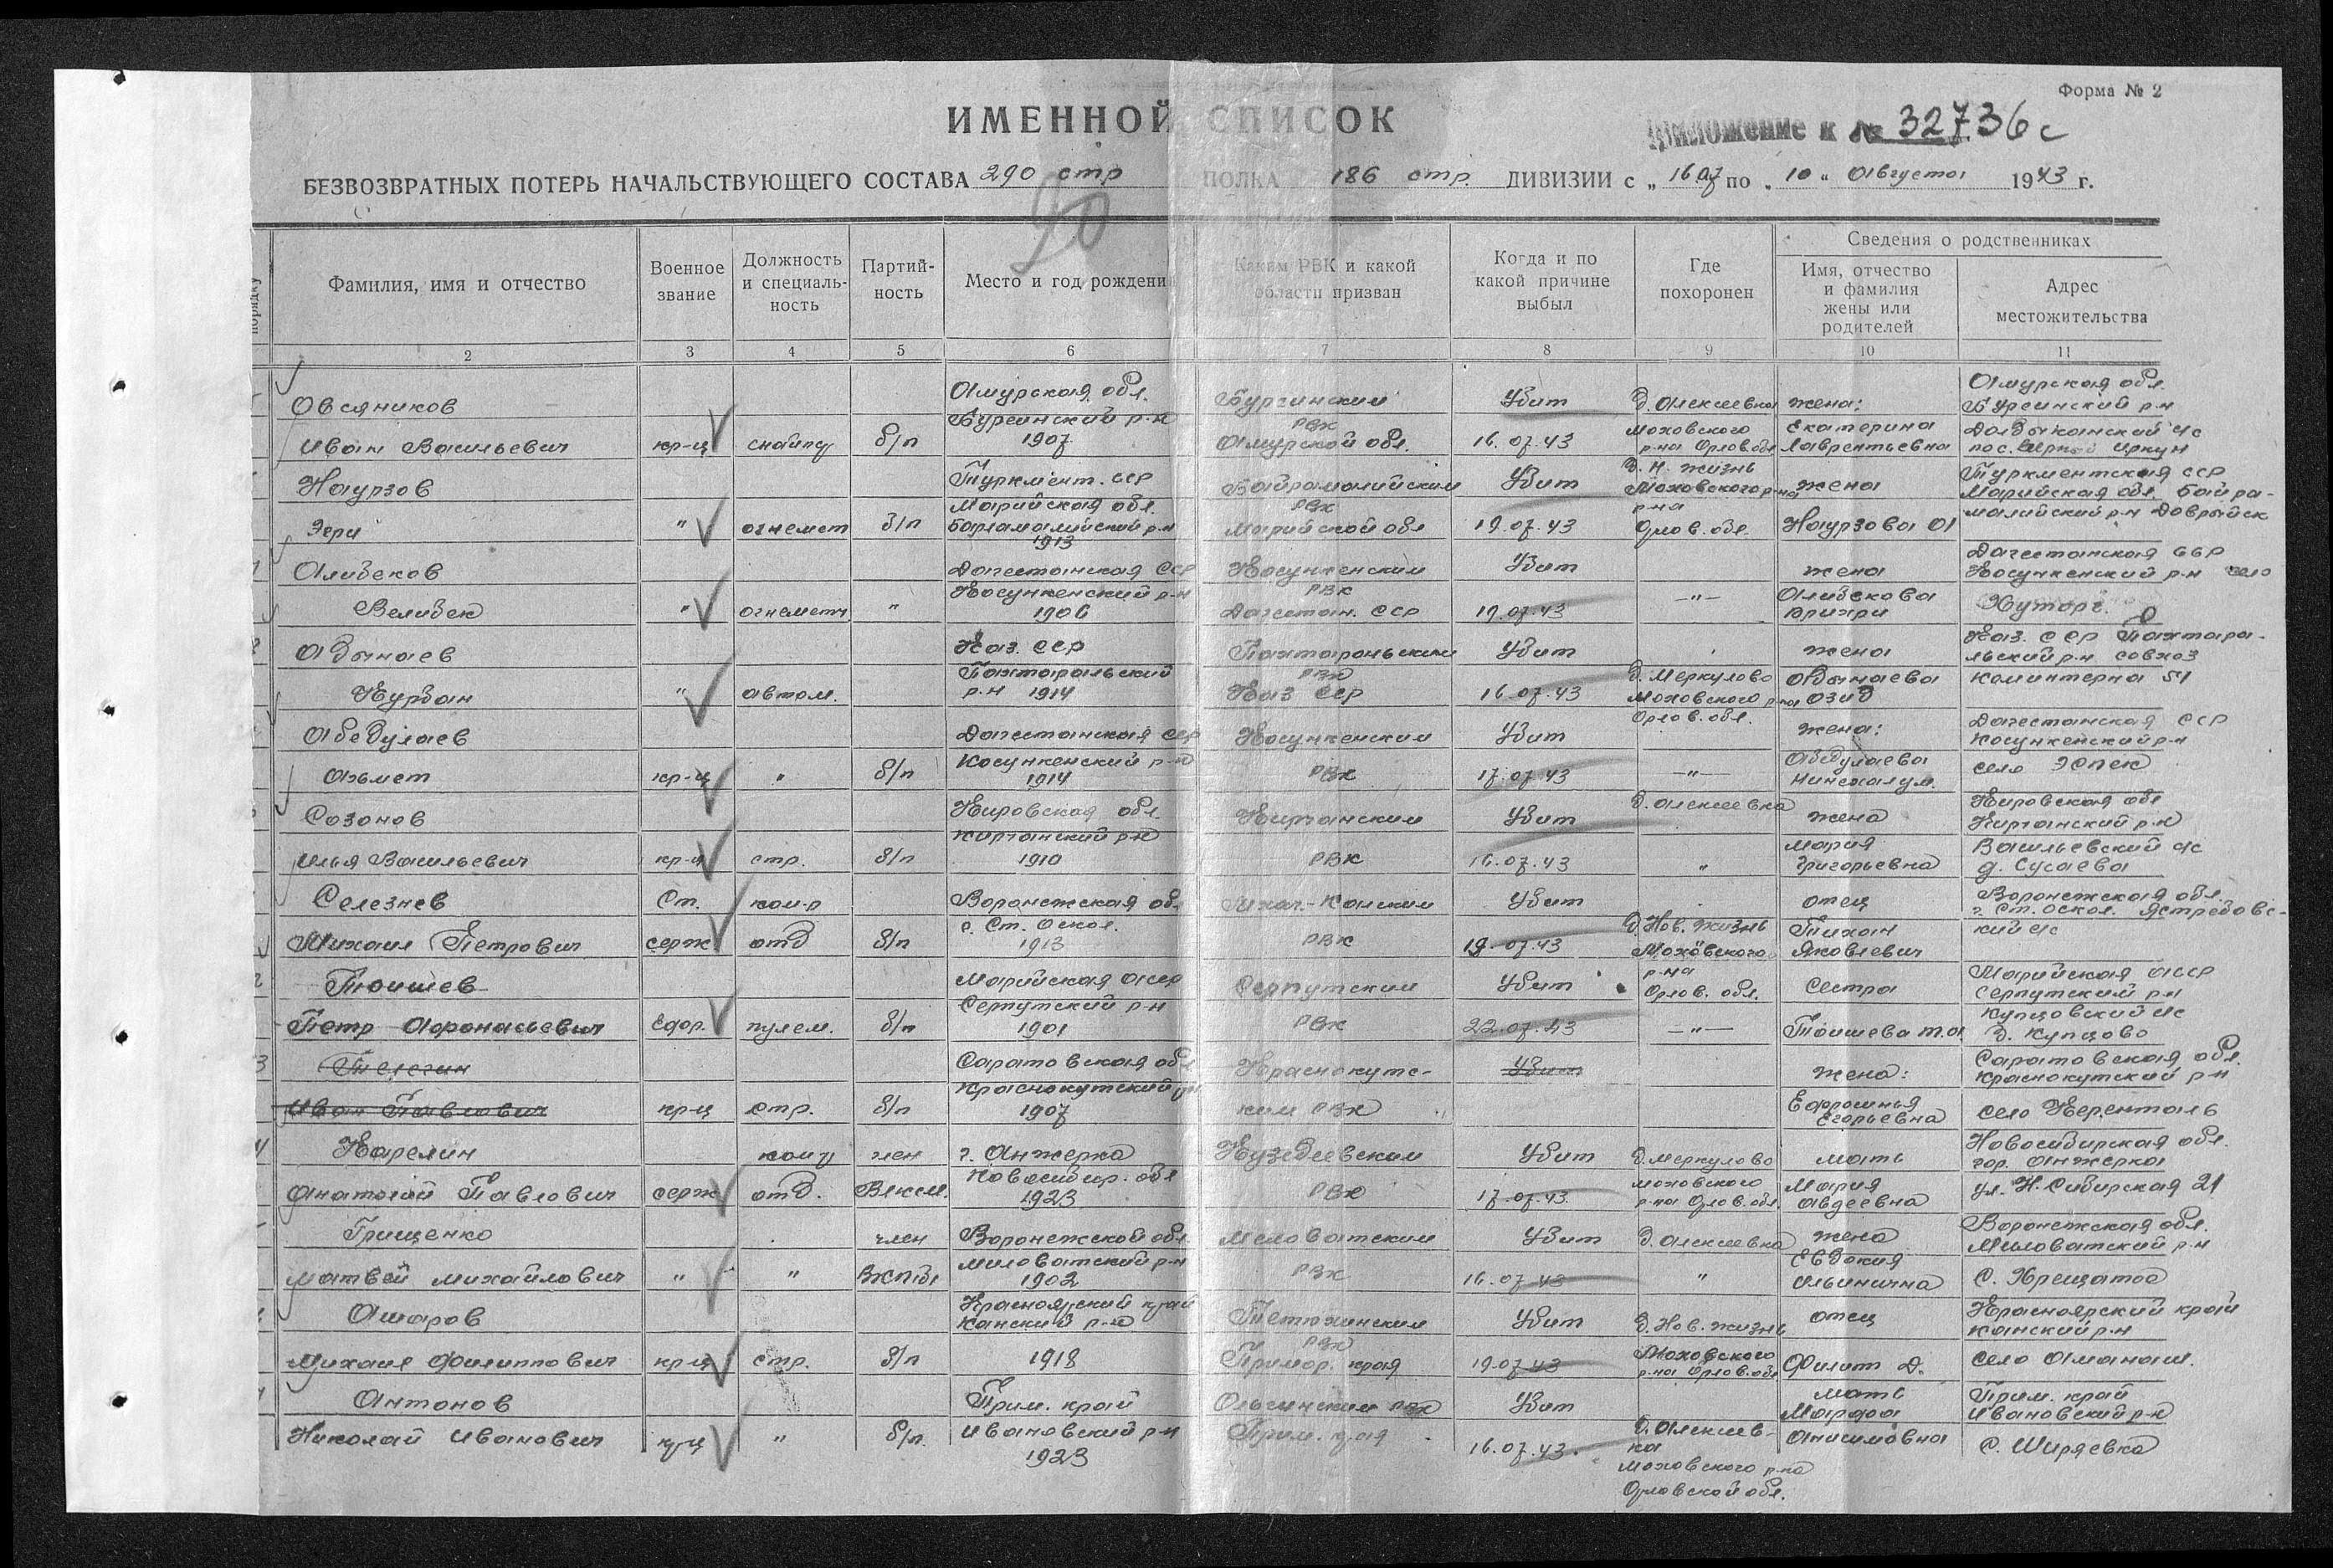 Форма № 2
ИМЕННОЙ СПИСОК
Приложение к № 32736с
БЕЗВОЗВРАТНЫХ ПОТЕРЬ НАЧАЛЬСТВУЮЩЕГО СОСТАВА 290 стр ПОЛКА 186 стр. ДИВИЗИИ с „ 16.07 по „ 10 " Августа 1943 г.
90
порядку
Фамилия, имя и отчество
Военное звание
Должность и специаль-ность
Партий-ность
Место и год рождени
Каким РВК и какой области призван
Когда и по какой причине выбыл
Где похоронен
Сведения о родственниках
Имя, отчество и фамилия жены или родителей
Адрес местожительства
2 3 4 5 6 7 8 9 10 11
Овсяников Амурская обл. Бурейнский р-н Бурейнским РВК Убит Д. Алексеевка жена: Амурская обл. Бурейнский р-н
Иван Васильевич кр-ц снайпер б/п 1907 Амурской обл. 16.07.43 Моховского р-на Орлов.обл Екатерина Лаврентьевна с/с пос.
Наурзов Туркмент. сср Марийская обл. Байрамалийским РВК Убит Д. Н. жизнь Моховского р-на жена Туркментская сср Марийская обл. Байра-
" огнемет б/п Байрамалийский р-н 1913 Марийской обл 19.07.43 Орлов. обл. Наурзова малийский р-н
Алибеков Дагестанская сср Косункенский р-н Косункенским РВК Убит жена Дагестанская ССР Косункенский р-н село
Велибек " огнеметч " 1906 Дагестан. сср 19.07.43 —"— Алибекова Хуторг.
Адынаев Каз. сср Пахтаральский Пахтаральским РВК Убит жена Каз. сср Пахтара-льский р-н совхоз
Курбан " автом. р-н 1914 Каз сср 16.07.43 Д. Меркулово Моховского р-на Орлов. обл. Адынаева Озид коминтерна 51
Абедулаев Дагестанская сср Косункенским Убит жена: Дагестанская сср Косункенский р-н
Аьмет кр-ц " б/п Косункенский р-н 1914 РВК 17.07.43 —"— Абедулаева село Эспек
Созонов Кировская обл. Киргам Убит Д. Алексеевка жена Кировская обл
Илья Васильевич кр-ц стр. б/п 1910 РВК 16.07.43 " Мария Григорьевна Васильевский с/с д. Сусаева
Селезнев Ст. ком-р Воронежская обл Убит отец Воронежская обл. г. Ст. Оскол. Ястребовс-
Михаил Петрович серж. отд б/п г. Ст. Оскол. 1913 РВК 19.07.43 Д. Нов. жизнь Моховского р-на Орлов. обл. Тихон Яковлевич кий с/с
Тоишев Марийская асср Сернурский р-н Сернутским Убит сестра Марийская асср Сернутский р-н
Петр Афонасьевич Ефр. пулем. б/п 1901 РВК 22.07.43 —"— Тоишева Т.А. Купцовский с/с Д. Купцово
Телегин Саратовская обл Краснокутский р-н Краснокутс- Убит жена: Саратовская обл. Краснокутский р-н
Иван Павлович кр-ц стр. б/п 1907 ким РВК Ефросинья Егорьевна село Жеренталь
Карелин ком-р член г. Анжерка Кузедеевским Убит Д. Меркулово мать Новосибирская обл. гор. Анжерка
Анатолий Павлович серж. отд. Влксм. Новосибир. обл 1923 РВК 17.07.43 Моховского р-на Орлов.обл. Мария Авдеевна ул. Н. Сибирская 21
Грищенко член Воронежской обл. Меловатским Убит Д. Алексеевка жена Воронежская обл. Меловатский р-н
Матвей Михайлович " " ВКП(б) Меловатский р-н 1902 РВК 16.07.43 " Евдокия Ильинична с. Хрещатое
Ашаров Красноярский край Канский р-н Тетюхинским РВК Убит Д. Нов. жизнь отец Красноярский край Канский р-н
Михаил Филиппович кр-ц стр. б/п 1918 Примор. края 19.07.43 Моховского р-на Орлов.обл Филип Д. село Аманаш.
Антонов Прим. край Ольгинским рвк Убит мать Прим. край
Николай Иванович кр-ц " б/п. Ивановский р-н 1923 Прим. края 16.07.43. Д. Алексеев-ка Моховского р-на Орловской обл. Марфа Анисимовна Ивановский р-н с. Ширяевка